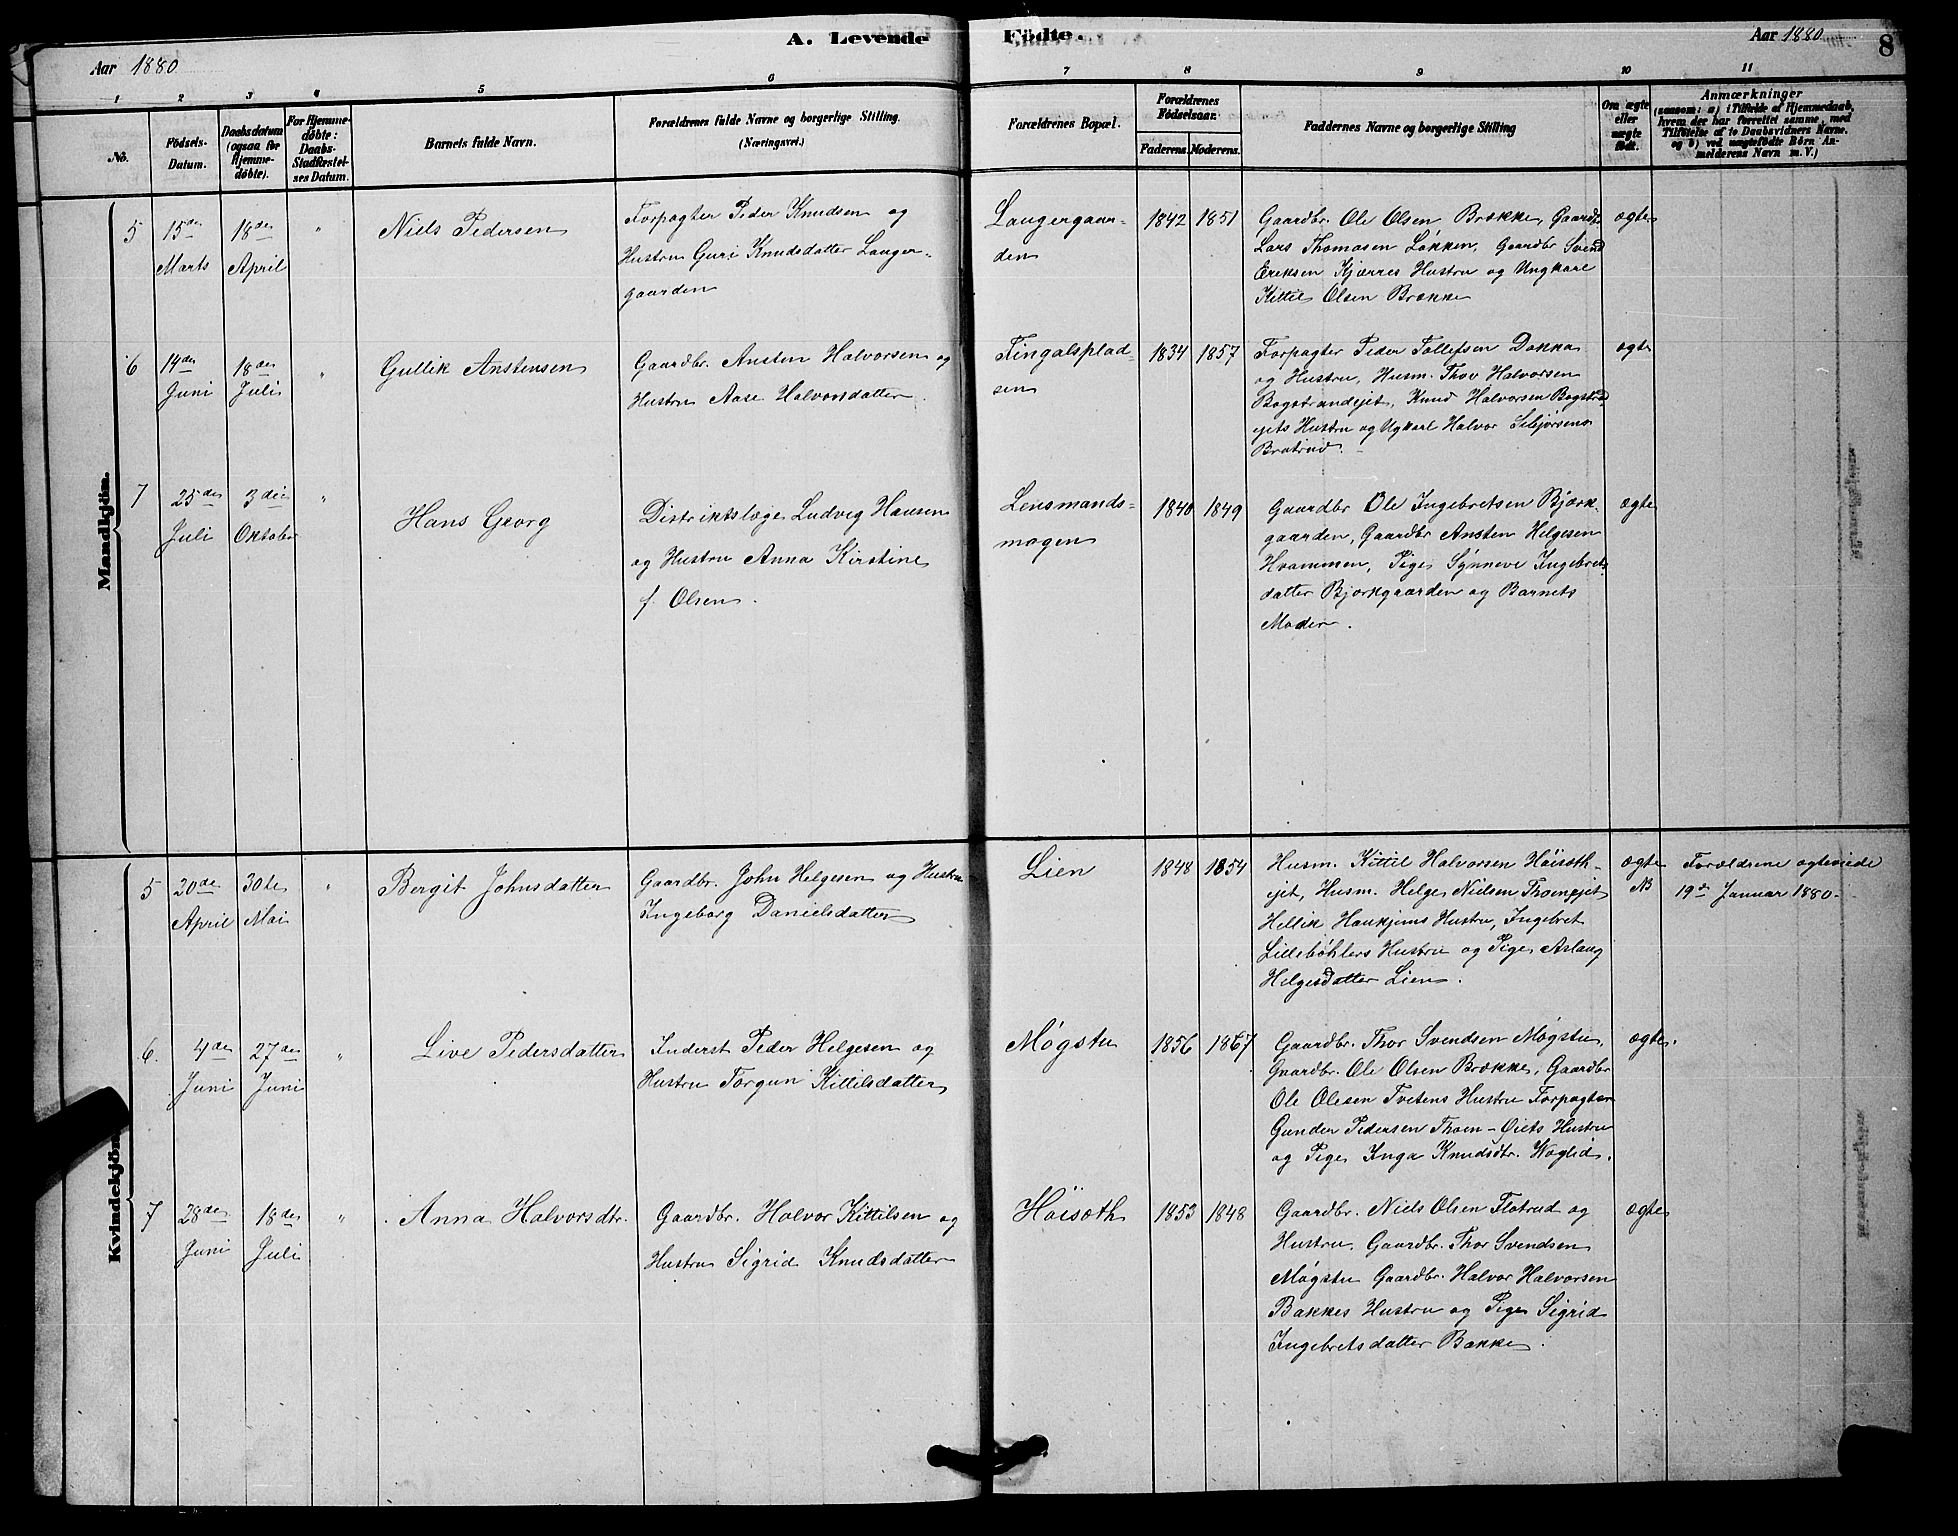 A. Levende Födte.
Aar 1880
Aar 1880
8
1 2 3 4 5 6 7 8 9 10 11
No.
Födsels-
Datum.
Daabsdatum
(ogsaa for
Hjemme-
döbte).
For Hjemme-
döbte:
Daabs-
Stadfæstel-
ses Datum.
Barnets fulde Navn.
Forældrenes fulde Navne og borgerlige Stilling.
(Næringsvei.)
Forældrenes Bopæl.
Forældrenes
Födselsaar.
Faderens. Moderens.
Faddernes Navne og borgerlige Stilling
Om ægte
eller
uægte
født.
Anmærkninger
(saasom: a) i Tilfælde af Hjemmedaab,
hvem der har forrettet samme, med
Tilföielse af to Daabsvidners Navne.
og b) ved uægtefödte Börn An-
melderens Navn m. V.)
Mandkjön.
5
15de
Marts
18de
April
"
Niels Pedersen
Forpagter Peder Knudsen og
Hustru Guri Knudsdatter Langer-
gaarden
Langergaar-
den
1842 1851
Gaardbr. Ole Olsen Brække, Gaardb.
Lars Thomasen Løkken, Gaardbr Svend
Eriksen Kjærres Hustru og Ungkarl
Kittil Olsen Brække
ægte
6
14de
Juni
18de
Juli
"
Gullik Anstensen
Gaardbr. Ansten Halvorsen og
Hustru Aase Halvorsdatter.
Fingalsplad-
sen
1834 1857
Forpagter Peder Tollefsen Dokka
og Hustru, Husm. Thov Halvorsen
Bogstrandejet, Knud Halvorsen Bogstrd
ejets Hustru og Ugkarl Halvor
Bratrud.
ægte
7
25de
Juli
3die
Oktober
"
Hans Georg
Distriktslæge Ludvig Hansen
og Hustru Anna Kirstine
f. Olsen.
Lensmands-
mogen
1840 1849
Gaardbr Ole Ingebretsen Bjørk-
gaarden, Gaardbr Ansten Helgesen
Hvammen, Pige Synneve Ingebrets
datter Bjørkgaarden og Barnets
Moder.
ægte
Kvindekjön.
5
20de
April
30te
Mai
"
Bergit Johnsdatter
Gaardbr. John Helgesen og Hustru
Ingeborg Danielsdatter
Lien
1848 1854
Husm. Kittil Halvorsen Höisoth-
ejet, Husm. Helge Nielsen Thoenejet
Hellik Haukjems Hustru, Ingebret
Lillebøhlers Hustru og Pige Aslaug
Helgesdatter Lien.
ægte
NB
Forældrene ægteviede
19de Januar 1880.
6.
4de
Juni
27de
Juni
"
Live Pedersdatter
Inderst Peder Helgesen og
Hustru Torgun Kittilsdatter
Møgstu
1856 1867
Gaardbr. Thor Svendsen Møgstu
Gaardbr. Ole Olsen Brække, Gaardbr
Ole Olesen Tvetens Hustru Forpagter
Gunder Pedersen Thoen-Eiets Hustru
og Pige Inga Knudsdtr. Woglid.
ægte.
7
28de
Juni
18de
Juli
"
Anna Halvorsdtr.
Gaardbr. Halvor Kittilsen og
Hustru Sigrid Knudsdatter
Höisoth
1853 1848
Gaardbr. Niels Olsen Flatrud og
Hustru. Gaardbr. Thor Svendsen
Møgstu Gaardbr. Halvor Halvorsen
Bakkes Hustru og Pige Sigrid
Ingebretsdatter Bakke.
ægte